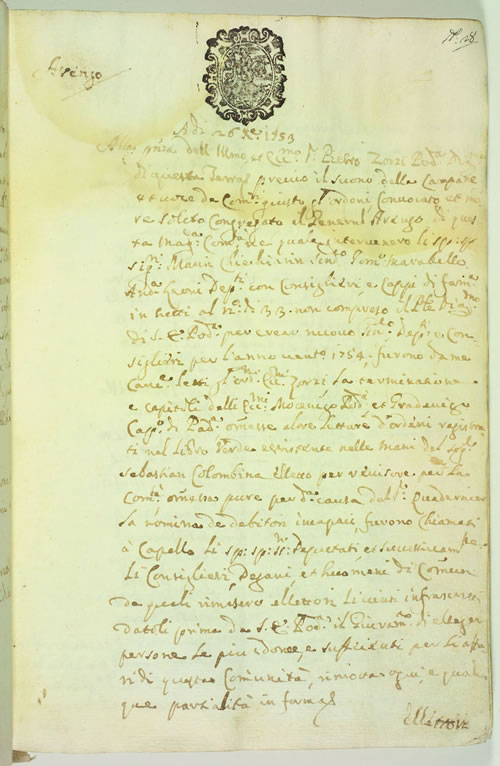 Arengo
Adi 26 Xbre 1753
Alla pnza dell'Illmo et Ecc.mo Sr. Pietro Zorzi Pod.à
di questa Terra previo il suono della Campana
et voce da Com.r giusto gl'ordeni Convocato et mo
re solito Congregato il General Arengo di ques
ta Mag.a Com.tà nel quale intervenero li sp: sp:
sig.ri Maria Chechin in
And.a con Consiglieri, e Cappi di fam.a
in tutti al n.o di 33. non compreso il
di S. E. Pod.à per crear nuovo Dep.ti e Con
siglieri per l'anno vent.o 1754. furono da me
Canc.re letti gl'ord.ni Ecc.mi Zorzi la terminatione
e capitoli delli Ecc.mi Mocenigo Pod.à et Gradenigo
Cap.o di Pad.a omesse altre letture d'ordini registra
ti nel Libro Verde essistente nelle mani del
Sebastian Colombina elletto per revisore per la
Com.tà omessa pure per d.a causa del Quadernier
la nomina de debitori incapaci, furono chiamati
à Capello li sp: sp: SS.ri Deputati, et successivam.te
li Consiglieri Degani, et huomeni di Comun
da quali rimasero ellettori li cinti infrascritti
datoli prima da S. E. Pod.à il giuram.to di elleger
persone le più idonee, e sufficienti per li affa
ri di questa Comunità, rimossa ogni, e qualun
que partialità, in forma